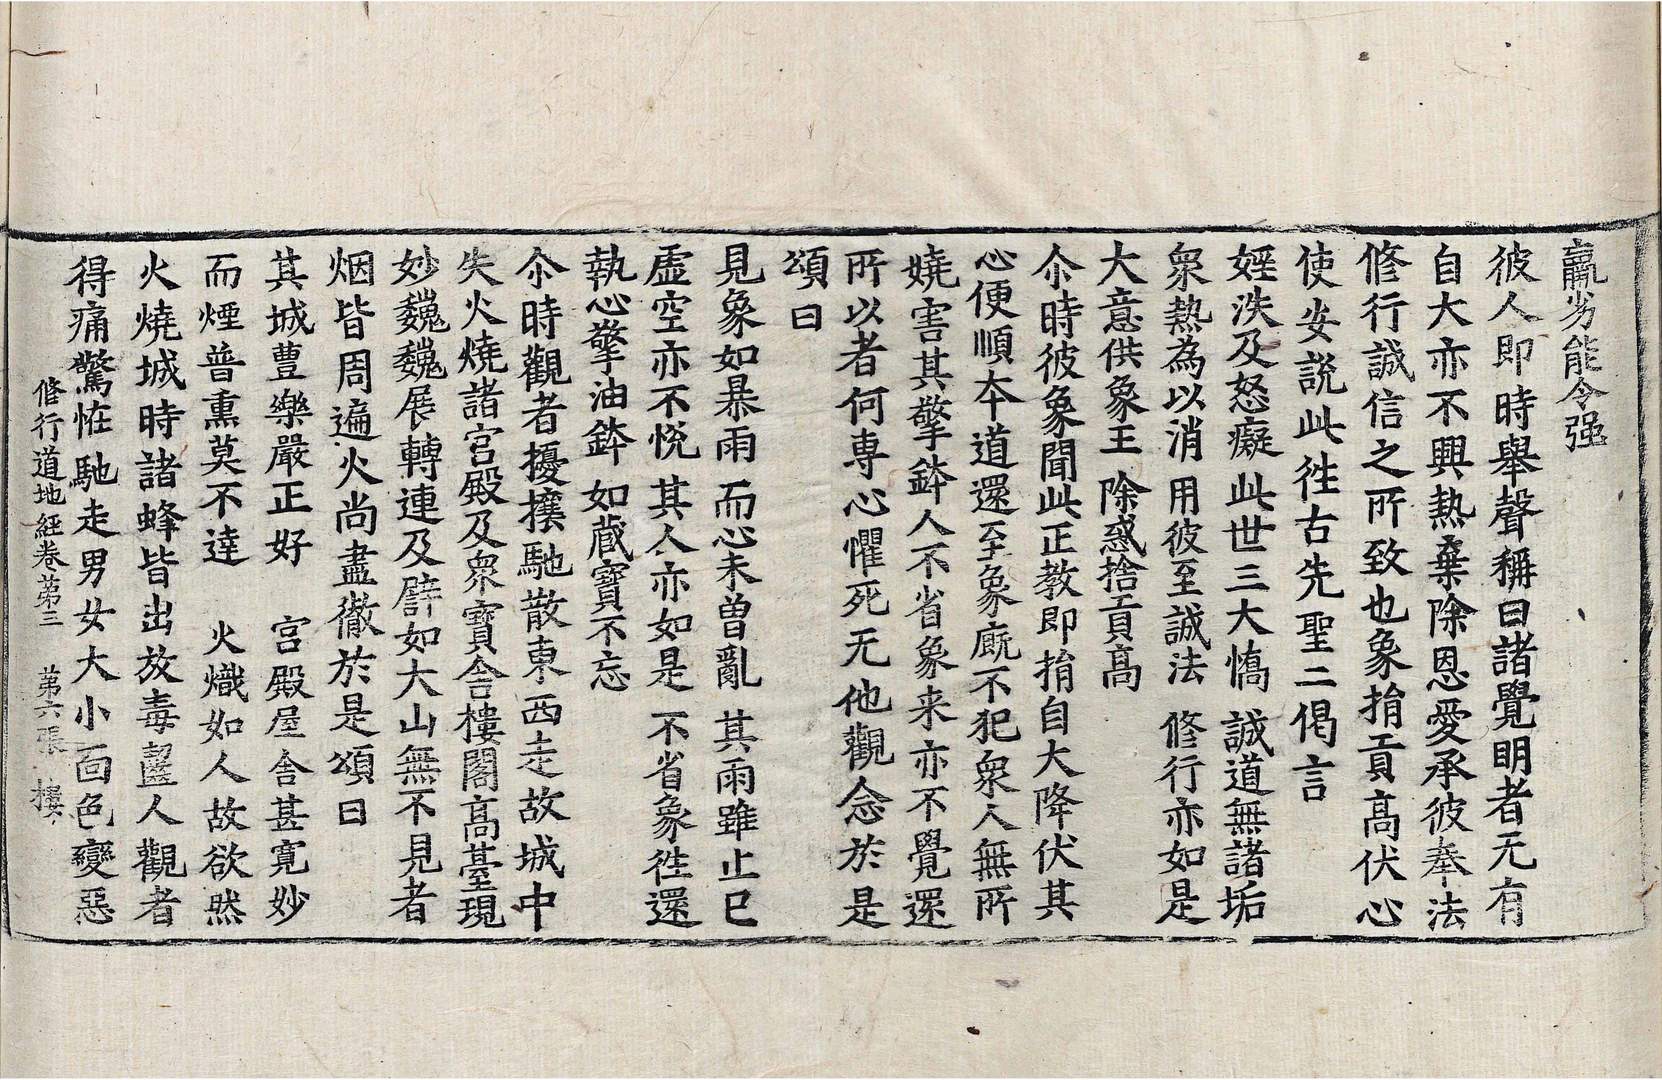 羸劣能令强
彼人即時舉聲稱曰諸覺明者无有
自大亦不興熱棄除恩愛承彼奉法
修行誠信之所致也象捐貢高伏心
使安説此往古先聖二偈言
婬泆及怒癡此世三大憍 誠道無諸垢
衆熱為以消 用彼至誠法 修行亦如是
大意供象王 除惑捨貢高
尒時彼象聞此正教即捐自大降伏其
心便順本道還至象廐不犯衆人無所
嬈害其擎鉢人不省象来亦不覺還
所以者何専心懼死无他觀念於是
頌曰
見象如暴雨 而心未曽亂 其雨雖止已
虚空亦不悅 其人亦如是 不省象徃還
執心擎油鉢 如蔵寳不忘
尒時觀者擾攘馳散東西走故城中
失火燒諸宮殿及衆寳舎樓閣髙臺現
妙巍巍展轉連及譬如大山無不見者
烟皆周遍火尚盡徹於是頌曰
其城豊樂嚴正好 宮殿屋舎甚寛妙
而煙普熏莫不達 火熾如人故欲然
火燒城時諸蜂皆出放毒螫人觀者
得痛驚恠馳走男女大小面色變惡
修行道地經卷第三 第六張 樓